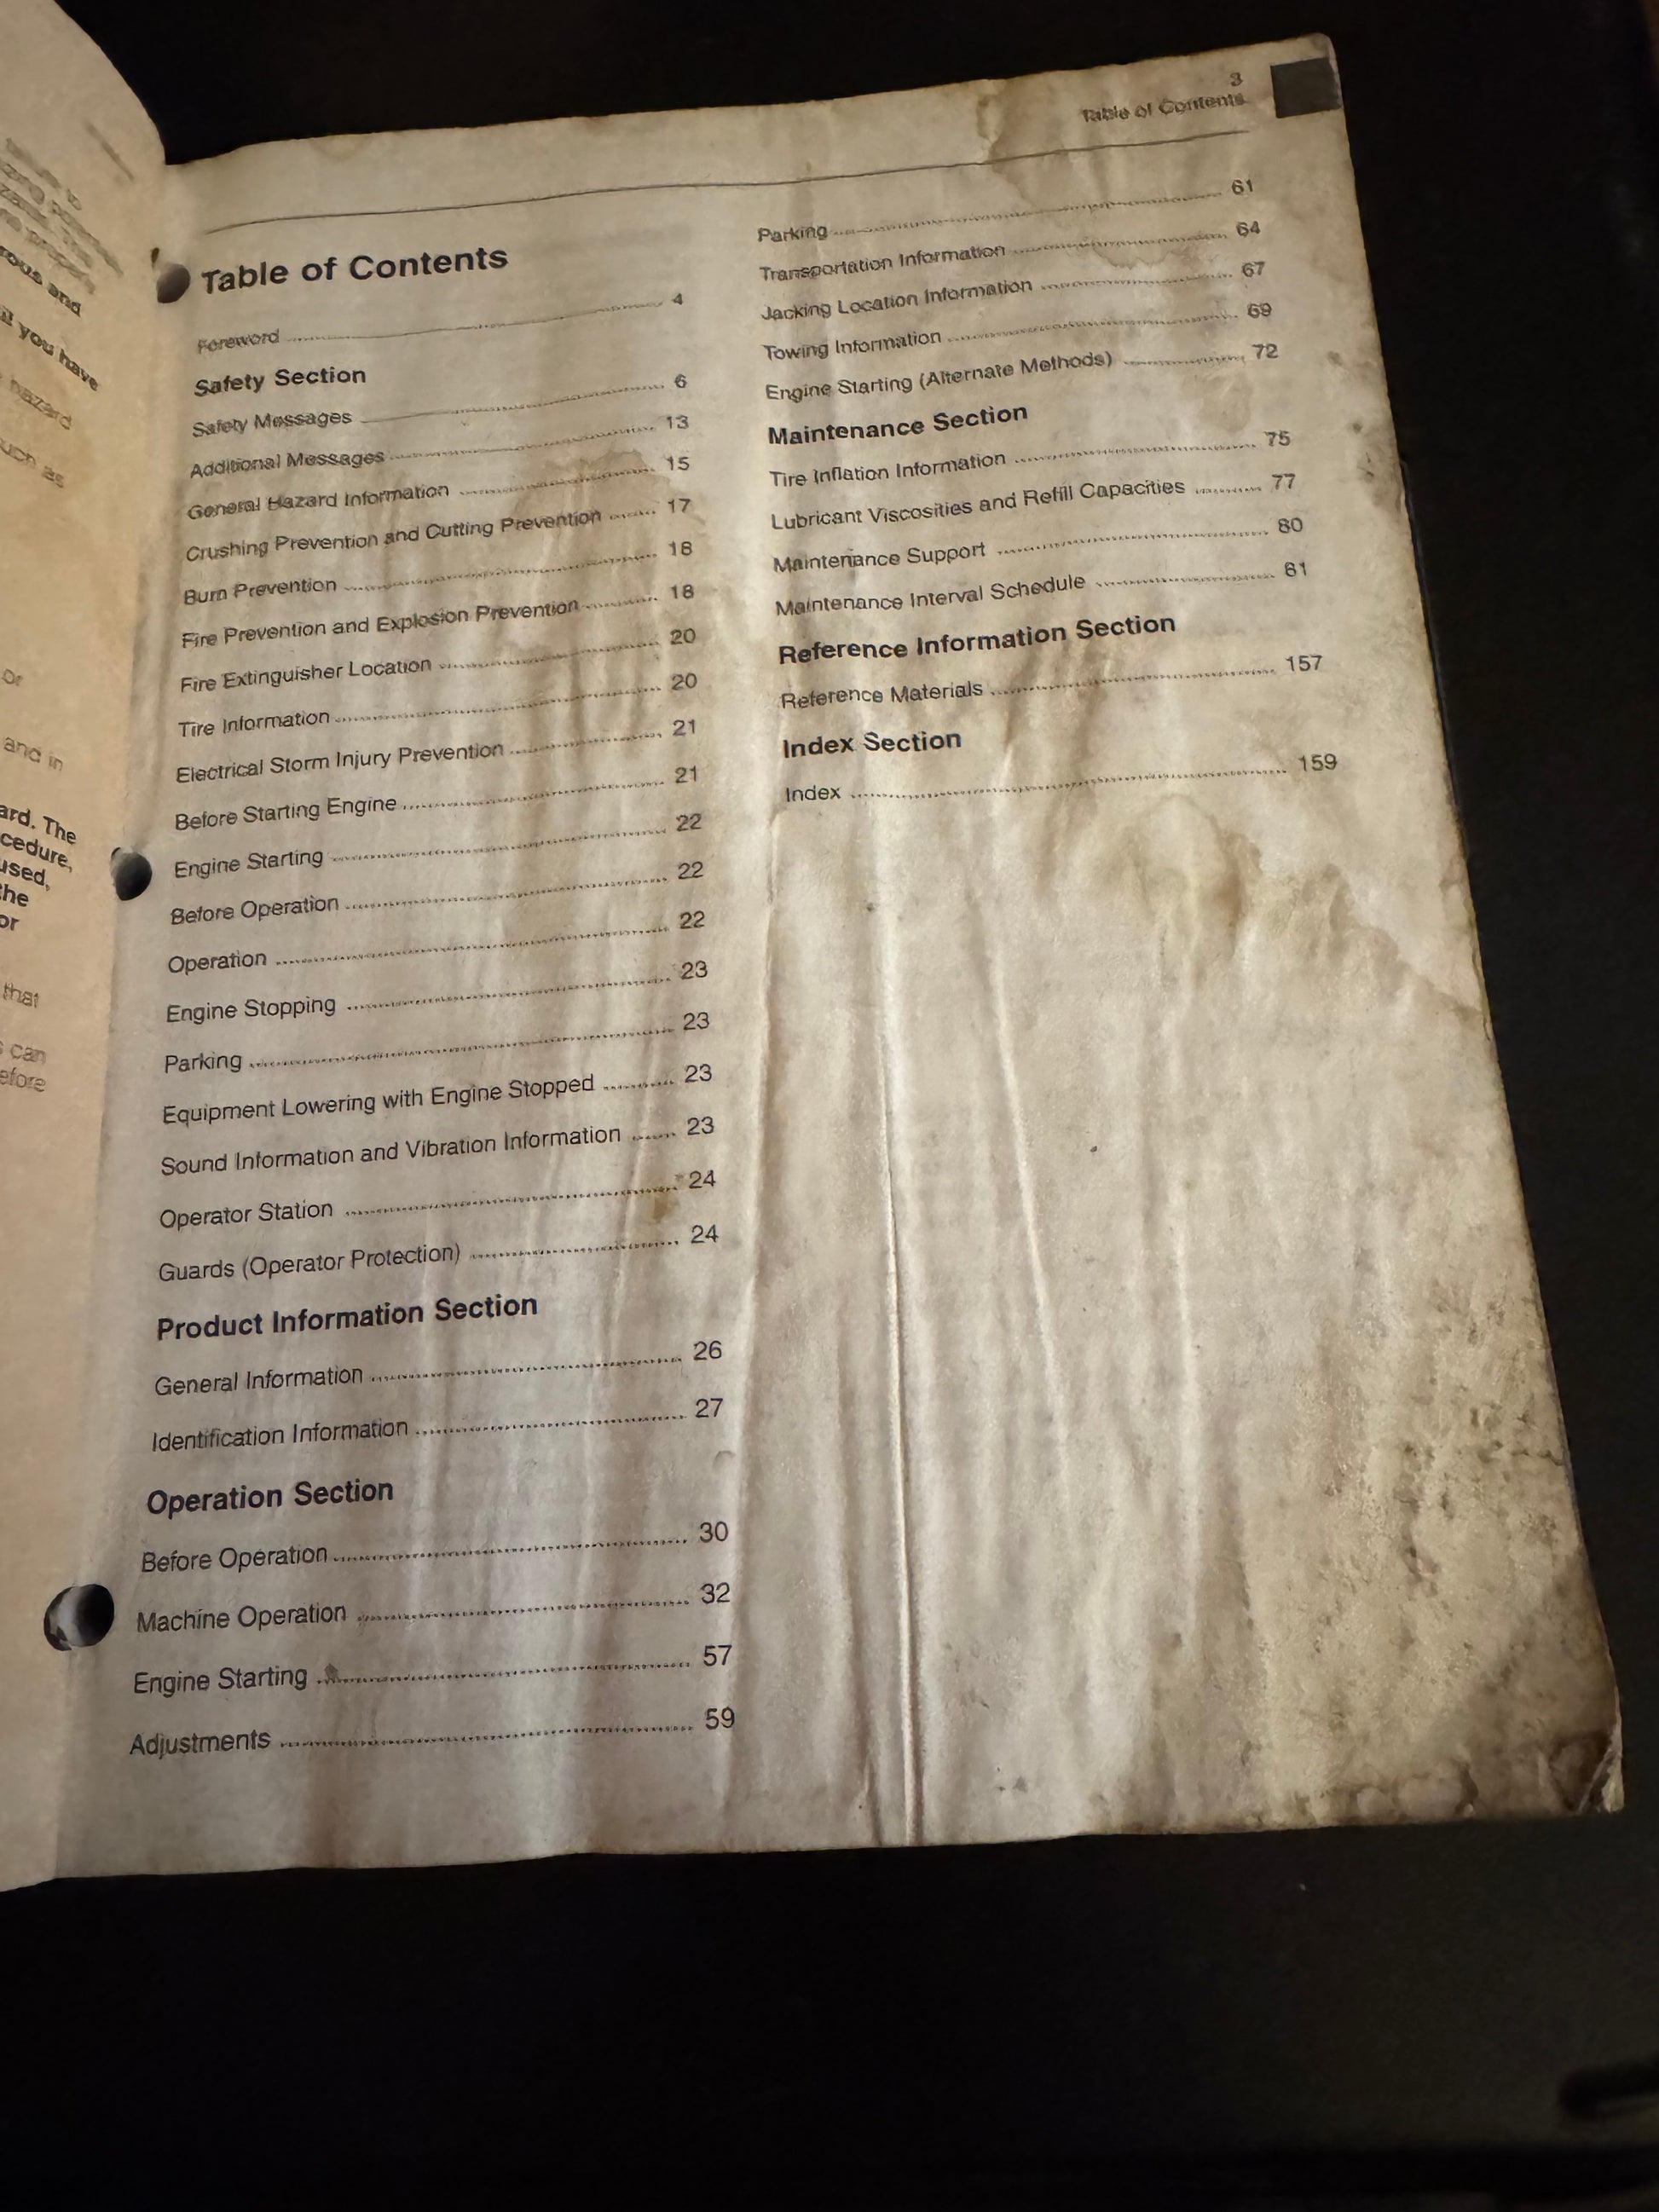 3
Table of Contents
Table of Contents
Foreword ........ 4
Safety Section
Safety Messages ........ 6
Additional Messages ........ 13
General Hazard Information ........ 15
Crushing Prevention and Cutting Prevention ........ 17
Burn Prevention ........ 18
Fire Prevention and Explosion Prevention ........ 18
Fire Extinguisher Location ........ 20
Tire Information ........ 20
Electrical Storm Injury Prevention ........ 21
Before Starting Engine ........ 21
Engine Starting ........ 22
Before Operation ........ 22
Operation ........ 22
Engine Stopping ........ 23
Parking ........ 23
Equipment Lowering with Engine Stopped ........ 23
Sound Information and Vibration Information ........ 23
Operator Station ........ 24
Guards (Operator Protection) ........ 24
Product Information Section
General Information ........ 26
Identification Information ........ 27
Operation Section
Before Operation ........ 30
Machine Operation ........ 32
Engine Starting ........ 57
Adjustments ........ 59
Parking ........ 61
Transportation Information ........ 64
Jacking Location Information ........ 67
Towing Information ........ 69
Engine Starting (Alternate Methods) ........ 72
Maintenance Section
Tire Inflation Information ........ 75
Lubricant Viscosities and Refill Capacities ........ 77
Maintenance Support ........ 80
Maintenance Interval Schedule ........ 81
Reference Information Section
Reference Materials ........ 157
Index Section
Index ........ 159
and
you have
hazard
as
or
and in
The
the
or
that
can